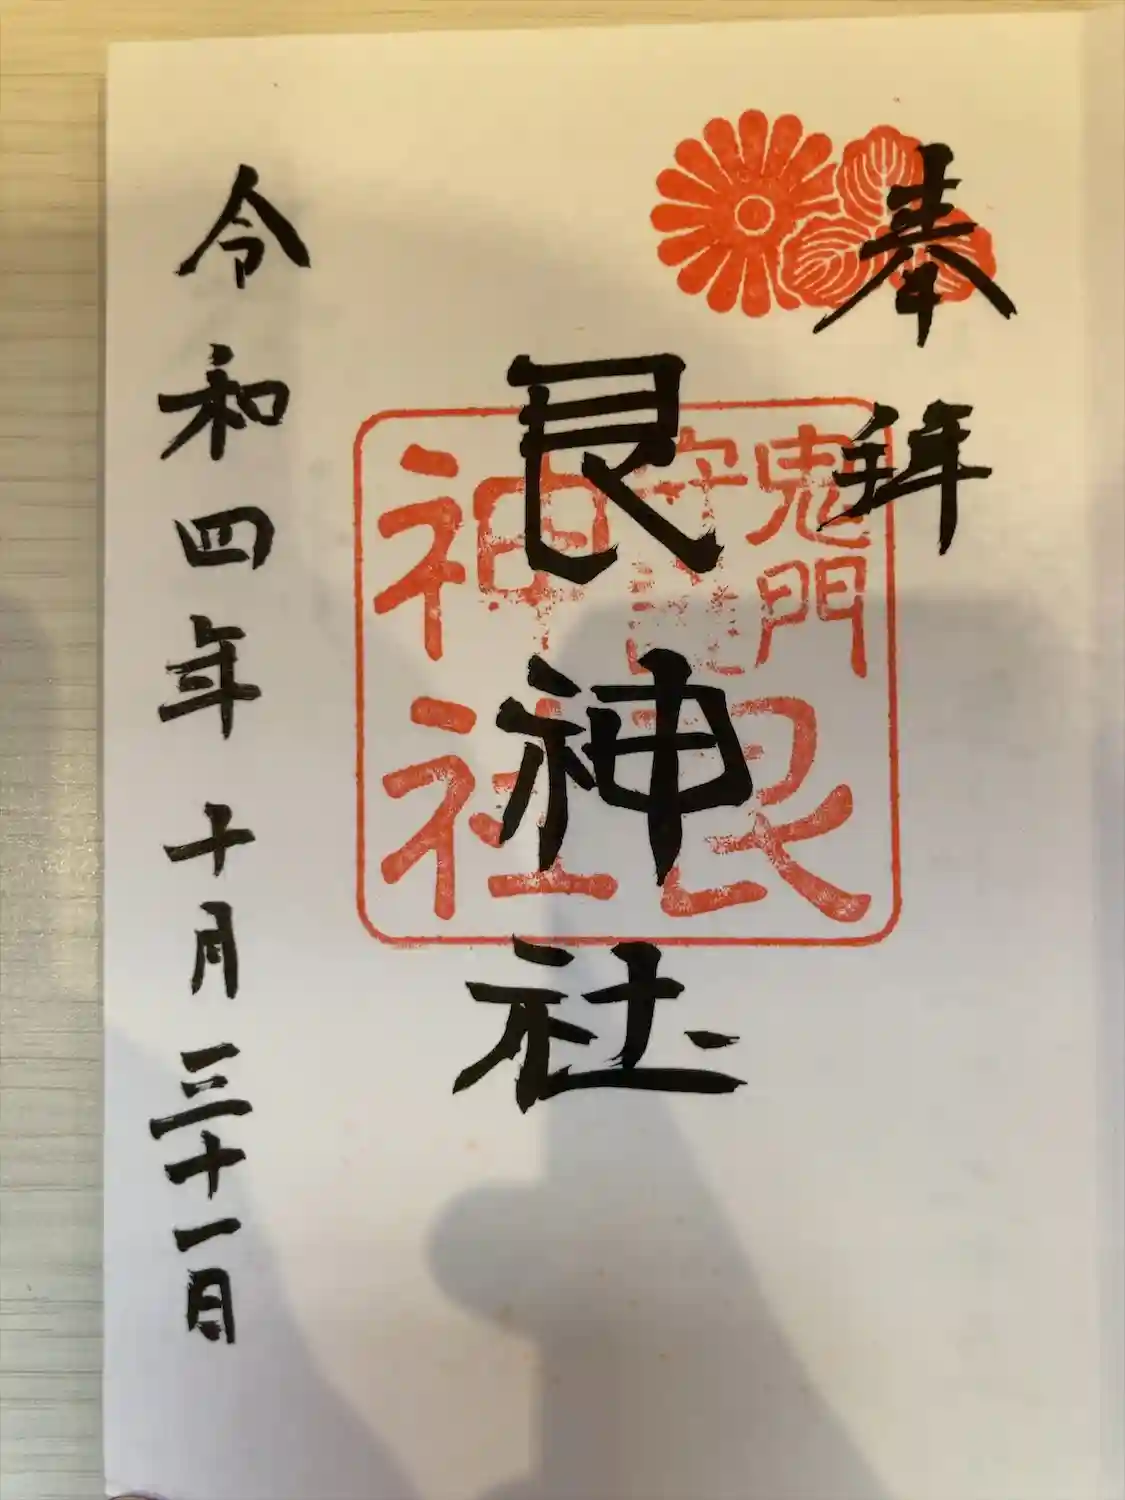 奉拝
鬼門
守護
艮
神社
艮神社
令和四年十月三十一日